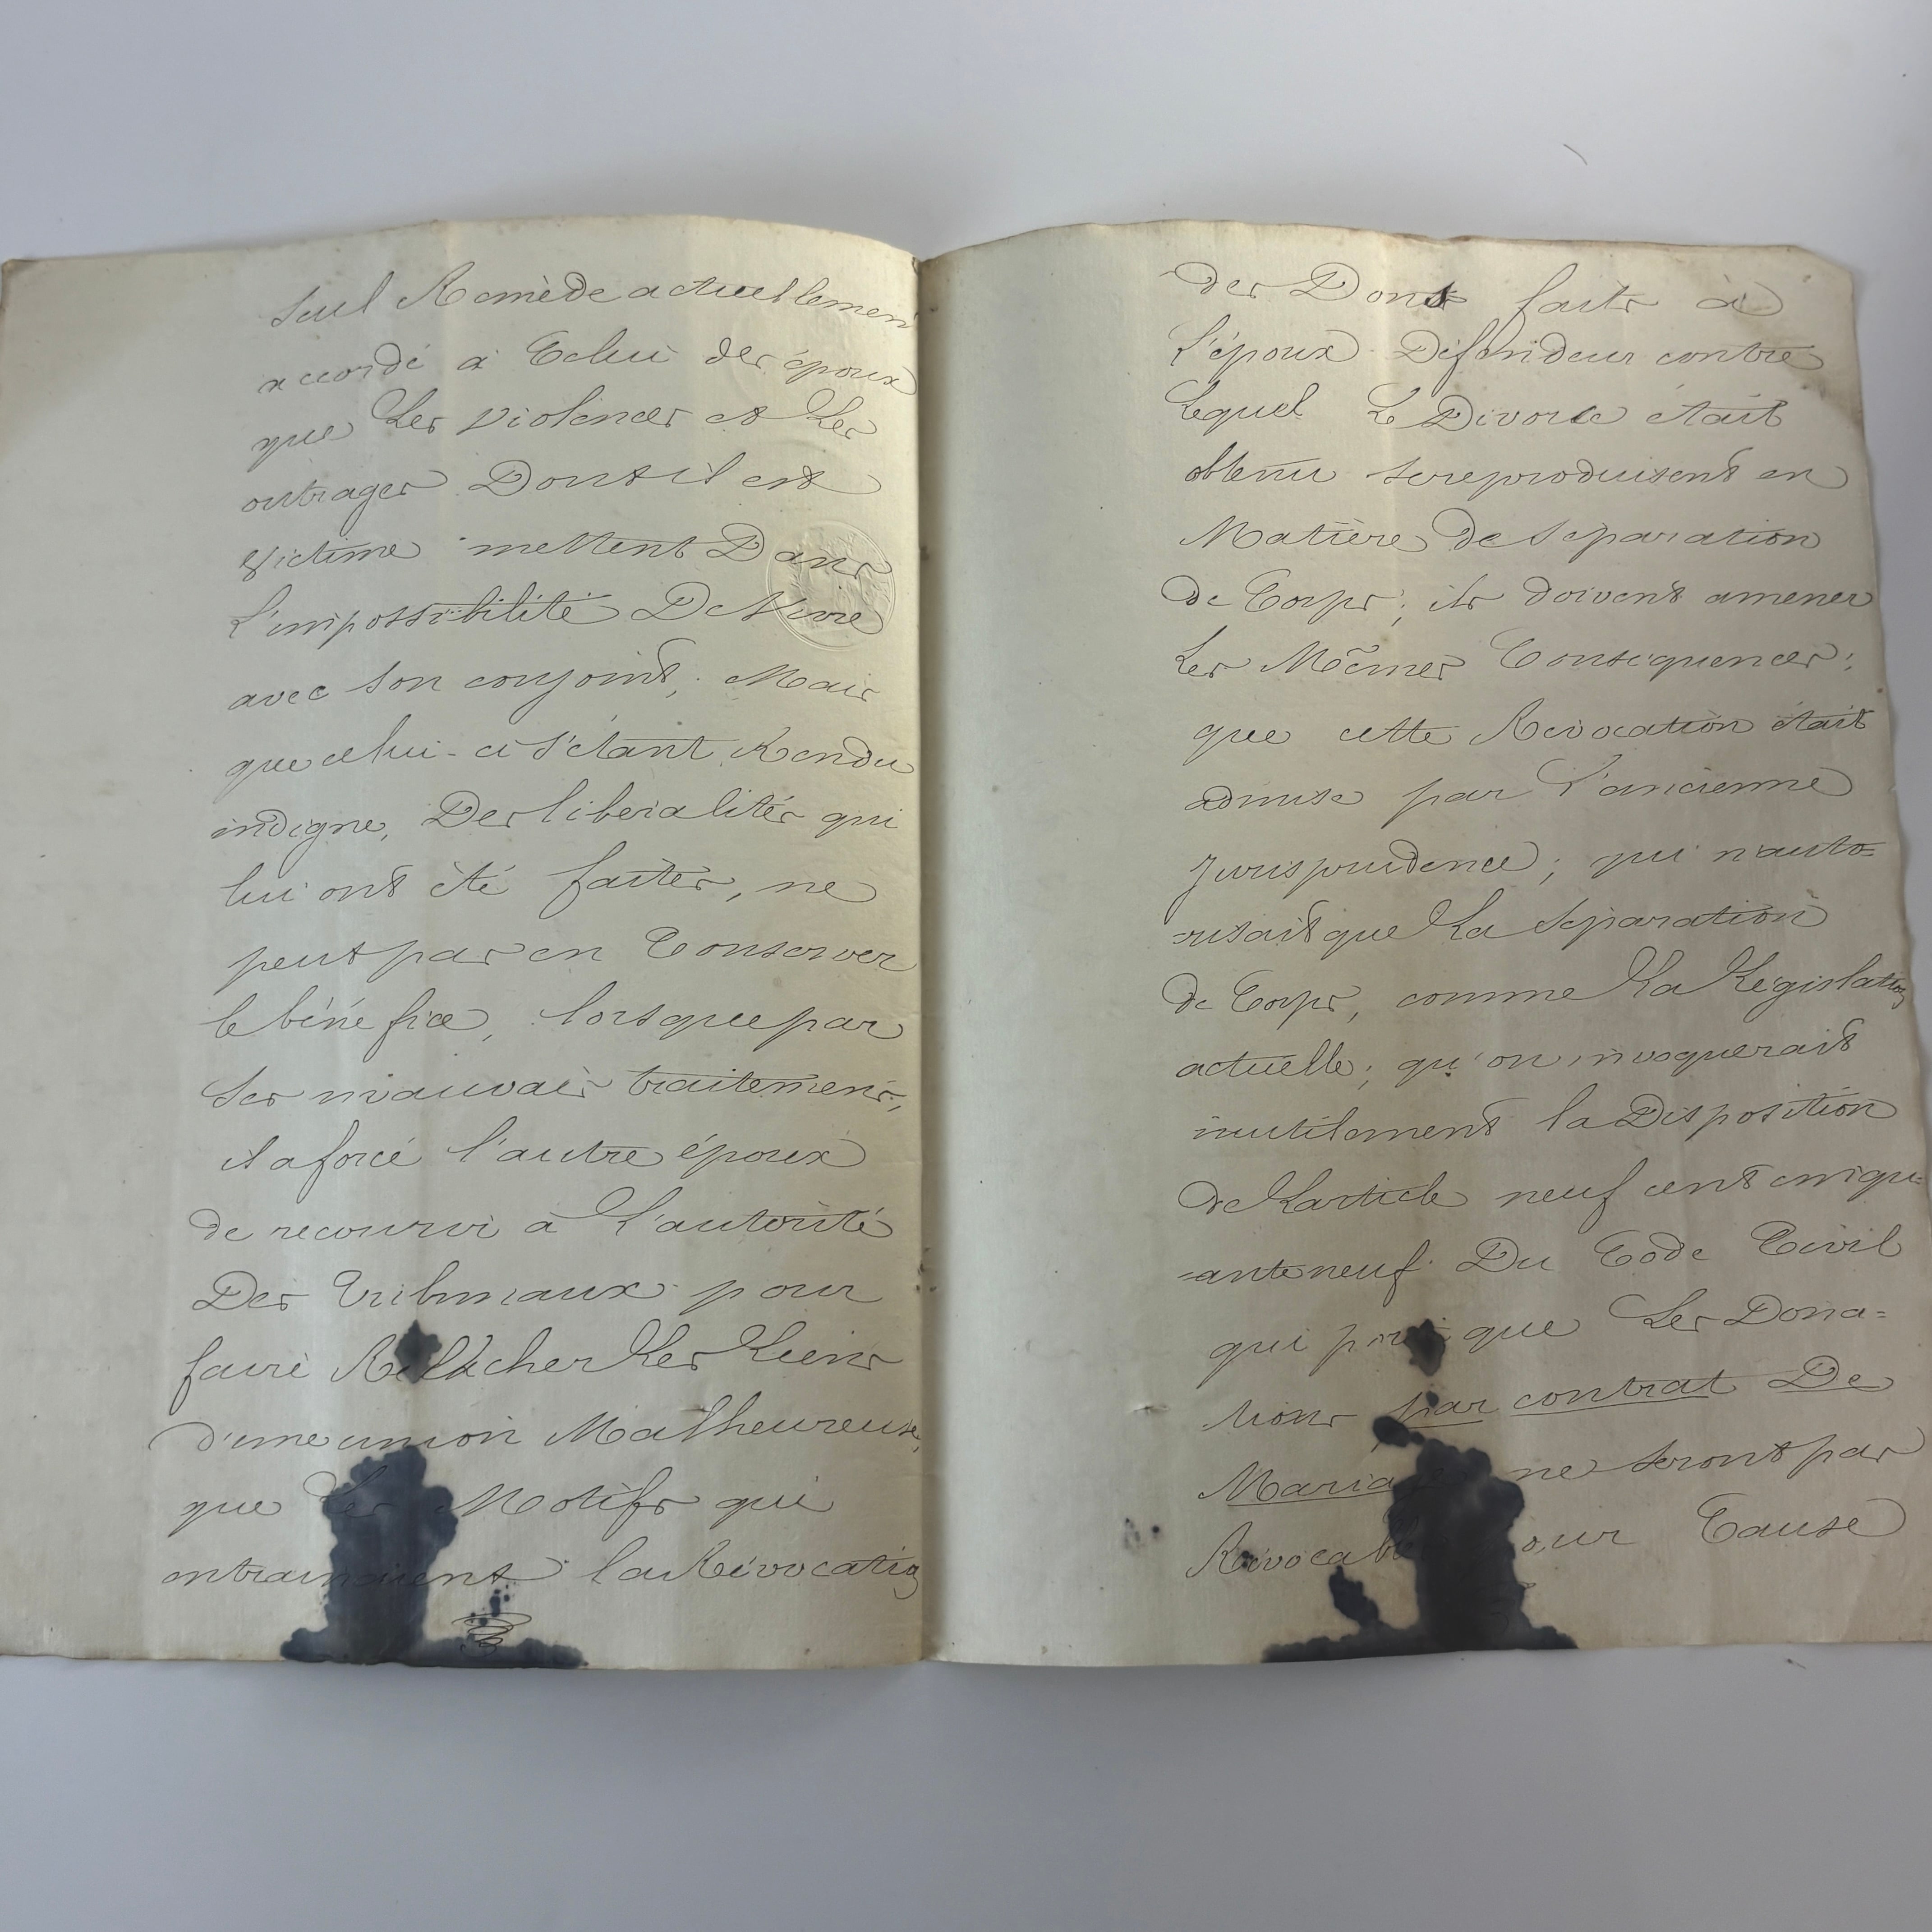 Seul Remède actuellement
accordé à Celui des époux
que Les violences et Les
outrages Dont il est
Victime mettent Dans
L'impossibilité De Vivre
avec son conjoint; Mais
que celui-ci s'étant Rendu
indigne, Des libéralités qui
lui ont été faites, ne
peut pas en Conserver
le bénéfice, lorsque par
Ses mauvais traitemens,
il a forcé l'autre époux
de recourir à L'autorité
Des Tribunaux pour
faire Relâcher Les Liens
d'une union Malheureuse,
que Les Motifs qui
entrainaient la Révocation
des Dons faits à
L'époux Défendeur contre
Lequel Le Divorce était
obtenu se reproduisent en
Matière de Séparation
de Corps; ils doivent amener
Les Mêmes Conséquences;
que cette Révocation était
admise par L'ancienne
Jurisprudence; qui n'auto=
=risait que La Séparation
de Corps, comme La Législation
actuelle; qu'on invoquerait
inutilement la Disposition
de L'article neuf cent cinqu=
=ante neuf Du Code Civil
qui porte que Les Dona=
tions par contrat De
Mariage ne seront pas
Révocables pour Cause